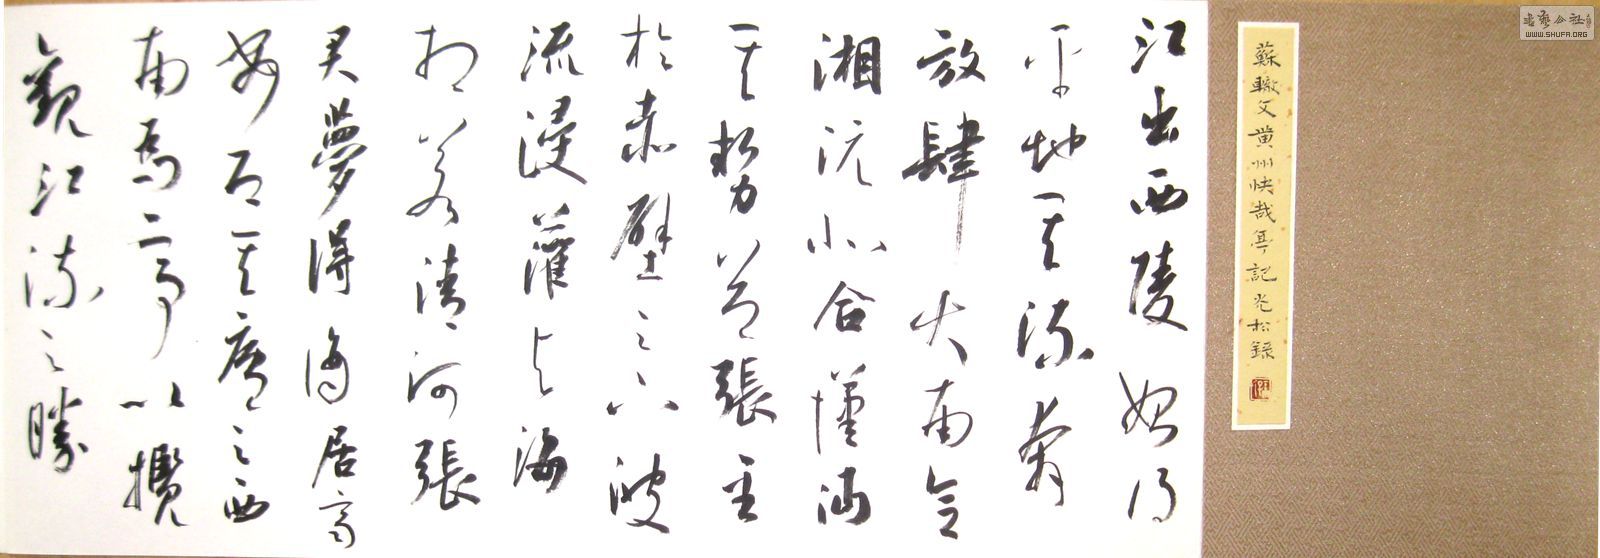 書藝公社
WWW.SHUFA.ORG
蘇轍文黄州快哉亭記光松録
江出西陵始得
平地其流奔
放肆大南合
湘沅北合漢沔
其勢益張至
於赤壁之下波
流浸灌与海
相若清河張
君夢得謫居齊
安即其廬之西
南為亭以攬
觀江流之勝